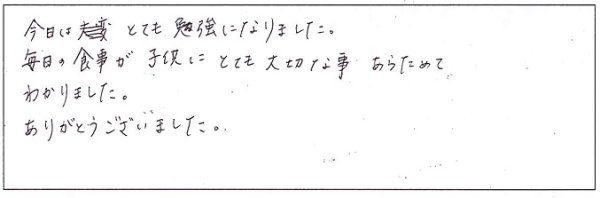 今日は とても 勉強になりました。
毎日の食事が 子供に とても 大切な事 あらためて
わかりました。
ありがとうございました。